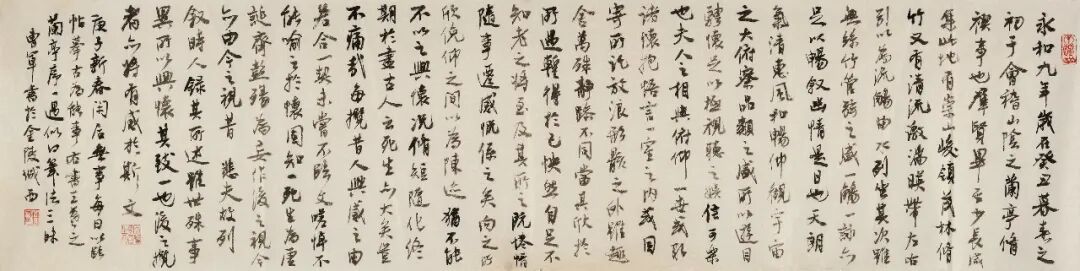 永和九年歲在癸丑暮春之
初于會稽山陰之蘭亭脩
禊事也群賢畢至少長咸
集此地有崇山峻領茂林脩
竹又有清流激湍暎帶左右
引以為流觴曲水列坐其次雖
無絲竹管弦之盛一觴一詠亦
足以暢敘幽情是日也天朗
氣清惠風和暢仰觀宇宙
之大俯察品類之盛所以遊目
騁懷足以極視聽之娛信可樂
也夫人之相與俯仰一世或取
諸懷抱悟言一室之內或因
寄所託放浪形骸之外雖趣
舍萬殊靜躁不同當其欣於
所遇蹔得於己快然自足不
知老之將至及其所之既惓情
隨事遷感慨係之矣向之所
欣俛仰之間以為陳迹猶不能
不以之興懷況脩短隨化終
期於盡古人云死生亦大矣豈
不痛哉每攬昔人興感之由
若合一契未嘗不臨文嗟悼不
能喻之於懷固知一死生為虛
誕齊彭殤為妄作後之視今
亦由今之視昔 悲夫故列
敘時人錄其所述雖世殊事
異所以興懷其致一也後之攬
者亦將有感於斯文
庚子新春閒居無事每日以臨
帖摹古為能事右書王羲之
蘭亭序一過似筆法三昧
書於金陵城西